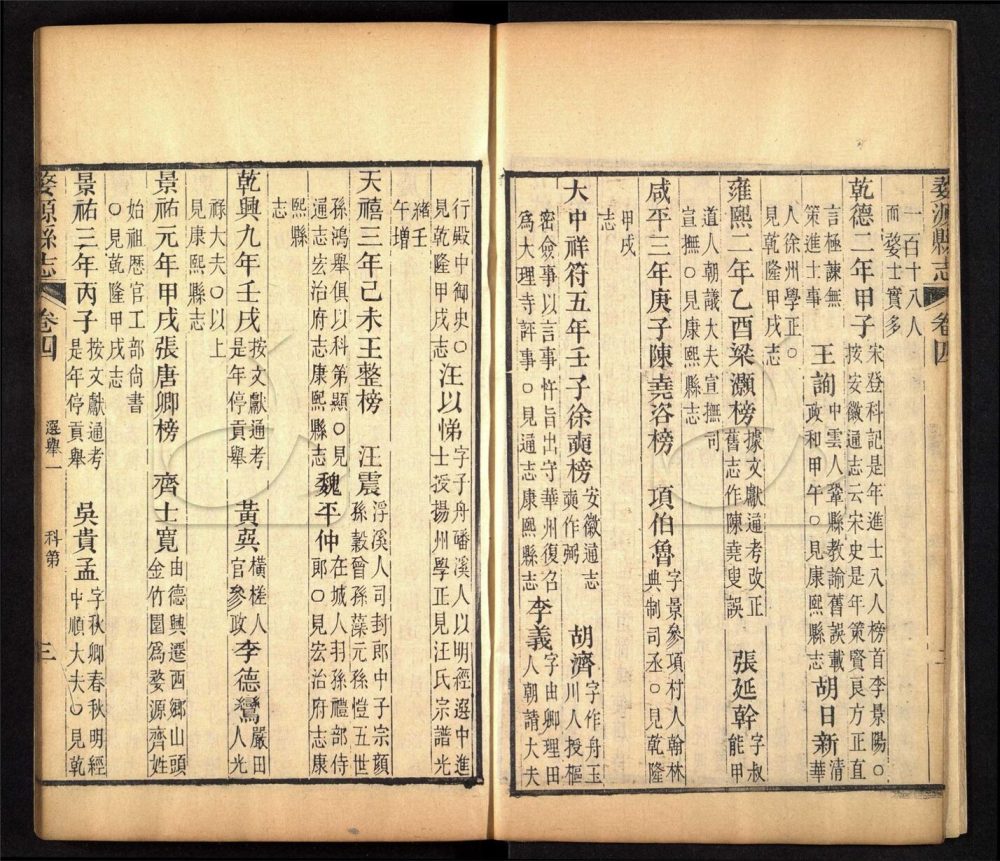 婺源縣志
卷四
一百十八人
而婺士實多
乾德二年甲子
宋登科記是年進士八人榜首李景陽○
按安徽通志云宋史是年策賢良方正直
言極諫無
策進士事
王詢
中雲人鞏縣教諭舊誤載
政和甲午○見康熙縣志
胡日新
清
華
人徐州學正○
見乾隆甲戌志
雍熙二年乙酉梁灝榜
據文獻通考改正
舊志作陳堯叟誤
張延幹
字叔
能甲
道人朝議大夫宣撫司
宣撫○見康熙縣志
咸平三年庚子陳堯咨榜
項伯魯
字景參項村人翰林
典制司丞○見乾隆
甲戌
志
大中祥符五年壬子徐奭榜
安徽通志
奭作弼
胡濟
字作舟玉
川人授樞
密僉事以言事忤旨出守華州復召
為大理寺評事○見通志康熙縣志
李義
字由卿理田
人朝請大夫
行殿中御史○
見乾隆甲戌志
汪以悌
字子舟皤溪人以明經選中進
士授揚州學正見汪氏宗譜光
緒壬
午增
天禧三年己未王整榜
汪震
浮溪人司封郎中子宗顏
孫穀曾孫藻元孫愷五世
孫鴻舉俱以科第顯○見
通志宏治府志康熙縣志
魏平仲
在城人羽孫禮部侍
郎○見宏治府志康
熙縣
志
乾興九年壬戌
按文獻通考
是年停貢舉
黃奕
橫槎人
官參政
李德鸞
嚴田
人光
祿大夫○以上
見康熙縣志
景祐元年甲戌張唐卿榜
齊士寬
由德興遷西鄉山頭
金竹園為婺源齊姓
始祖歷官工部尚書
○見乾隆甲戌志
景祐三年丙子
按文獻通考
是年停貢舉
吳貴孟
字秋卿春秋明經
中順大夫○見乾
婺源縣志
卷四
選舉一
科第
三